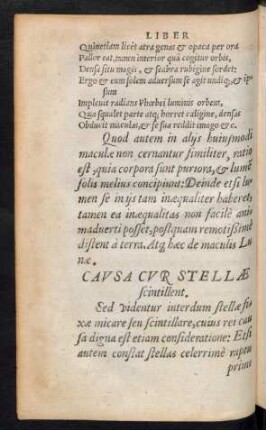 LIBER
Quinetiam licèt atra genas & opaca per ora
Pallor eat, tamen interior quà cogitur orbis,
Densa situ magis, & scabra rubigine sordet:
Ergo & cum solem aduersum se agit undiq;, & ipsum
Impleuit radians Phœbei luminis orbem,
Qua squalet parte atq; horret caligine, densas
Obducit maculas, & se sua reddit imago &c.
Quod autem in alijs huiusmodi
maculæ non cernantur similiter, ratio
est, quia corpora sunt puriora, & lumē
solis melius concipiunt: Deinde etsi lumen
se in ijs tam inæqualiter haberet,
tamen ea inæqualitas non facilè animaduerti
posset, postquam remotissimè
distent à terra. Atq; hæc de maculis Lunæ.
CAVSA CVR STELLÆ
scintillent.
Sed videntur interdum stellæ fixæ
micare seu scintillare, cuius rei causa
digna est etiam consideratione: Etsi
autem constat stellas celerrimè raptu
primi